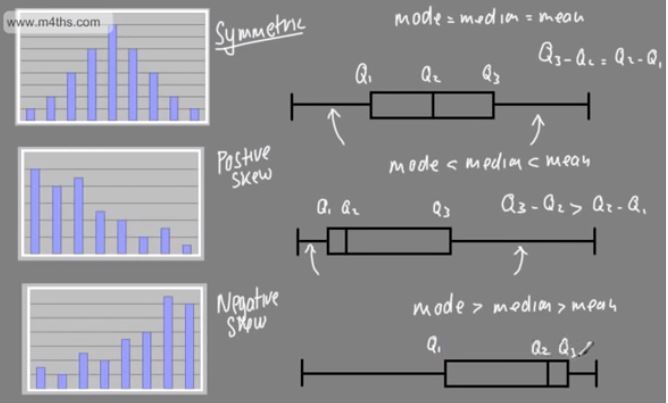 www.m4ths.com
Symmetric
mode = median = mean
Q₃ - Q₂ = Q₂ - Q₁
Q₁ Q₂ Q₃
Positive
skew
mode < median < mean
Q₃ - Q₂ > Q₂ - Q₁
Q₁ Q₂ Q₃
Negative
skew
mode > median > mean
Q₁ Q₂ Q₃